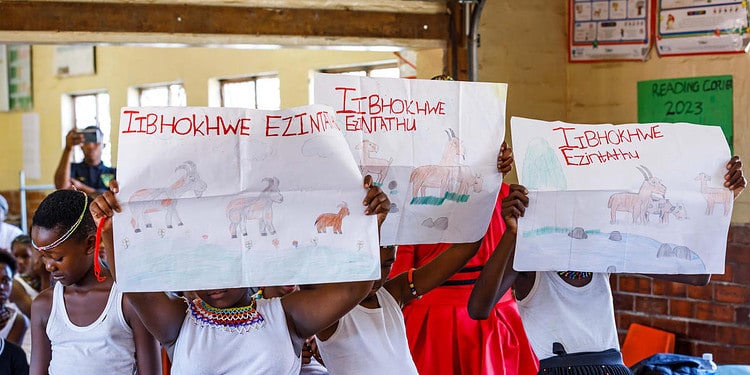 IIBHOKHWE EZINTA
IIBHOKHWE
EZINTATHU
IIBHOKHWE
Ezintathu
READING CORNER
2023